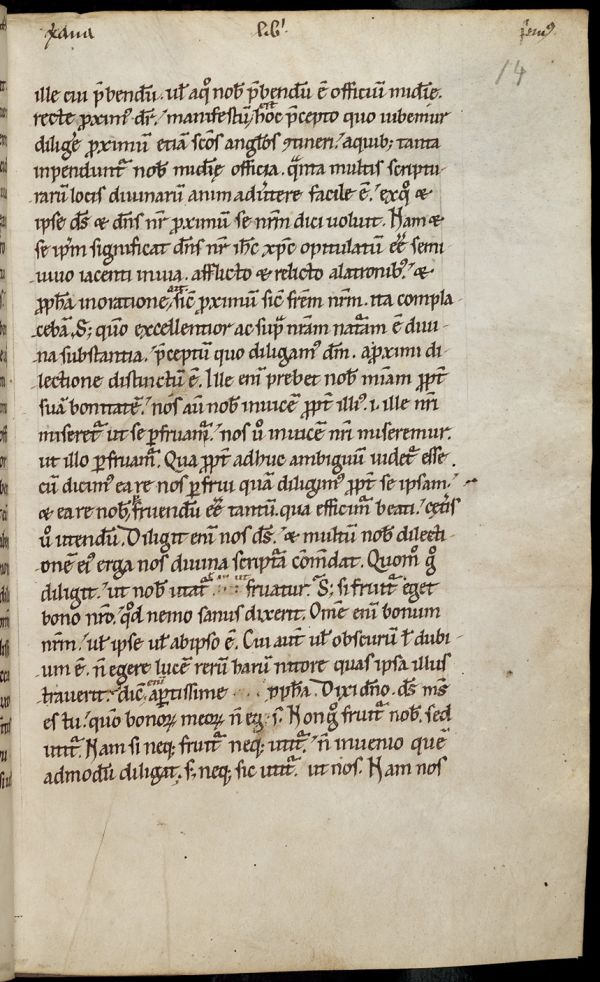 lib'
14
ille cui p̄bendū. ul̄ a q̊ nob̄ p̄bendū ē officiū mīdię.
recte p̄xim' dr̄. manifestū hoc p̄cepto quo iubemur
diligē p̄ximū etiā sc̄os anglōs ɔtineri. a quib; tanta
inpendunt̄ nob̄ mīdię officia. q̄nta multis scriptu-
rarū locis diuinarū animadūtere facile ē. ex q̊ &
ipse ds̄ & dn̄s nr̄ p̄ximū se nr̄m dici uoluit. Nam &
se ip̄m significat dn̄s nr̄ ih̄c xp̄c opitulatū eē semi
uiuo iacenti in uia. afflicto & relicto a latronib'. &
pp̄ha in oratione, sic̄ p̄ximū sic̄ fr̄em nr̄m. ita compla-
cebā. S; quō excellentior ac sup̄ nr̄am natām ē diui-
na substantia. p̄ceptū quo diligam' dm̄. a p̄ximi di-
lectione distinctū ē. Ille enī prebet nob̄ mīam pp̄t
suā bonitatē. nos aū nob̄ inuicē pp̄t illū. i. ille nr̄i
miseret̄ ut se p̄fruam̄. nos ů inuicē nr̄i miseremur.
ut illo p̄fruam̄. Qua pp̄t adhuc ambiguū uidet̄ esse.
cū dicim' ea re nos p̄frui quā diligim' pp̄t se ipsam.
& ea re nob̄ fruendū eē tantū. qua efficim̄ beati. cet̄is
ů utendū. Diligit enī nos ds̄. & multū nob̄ dilecti-
onē ei' erga nos diuina script̄a cōmdat. Quom̊ g̊
diligit. ut nob̄ utat̄ fruatur. S; si fruit̄ eget
bono nr̄o. q̊d nemo sanus dixerit. Om̄e enī bonum
nr̄m. ul̄ ipse ul̄ ab ipso ē. Cui aut̄ ul̄ obscurū ł dubi-
um ē. n̄ egere lucē rerū harū nitore quas ipsa illus
trauerit. dic̄ enī aptissime pp̄ha. Dixi dn̄o. ds̄ ms̄
es tu. quō bonoꝝ meoꝝ n̄ eg;s. Non g̊ fruit̄ nob̄. sed
utit̄. Nam si neq; fruit̄ neq; utit̄. n̄ inuenio quē
admodū diligat. s; neq; sic utit̄ ut nos. Nam nos